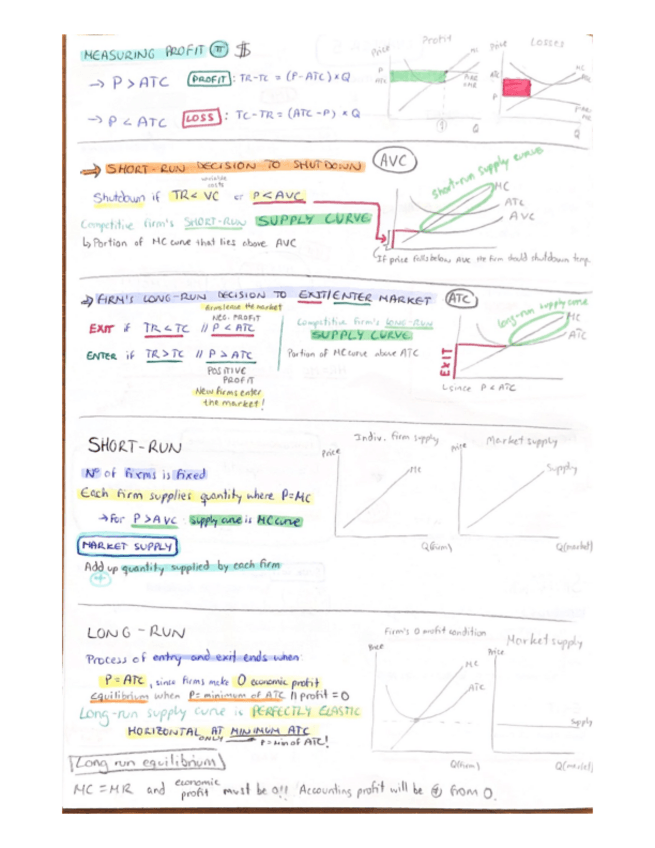 MEASURING PROFIT π $
→ P > ATC PROFIT: TR-TC = (P-ATC) x Q
→ P < ATC LOSS: TC-TR = (ATC-P) x Q
Profit
Price
MC
P
ATC
Q
Losses
Price
MC
ATC
P
Q
⇒ SHORT-RUN DECISION TO SHUTDOWN AVC
variable costs
Shutdown if TR < VC or P < AVC
Competitive firm's SHORT-RUN SUPPLY CURVE
↳ Portion of MC curve that lies above AVC
short-run supply curve
MC
ATC
AVC
If price falls below AVC the firm should shutdown temp.
⇒ FIRM'S LONG-RUN DECISION TO EXIT/ENTER MARKET ATC
firms leave the market
NEG. PROFIT
EXIT if TR < TC // P < ATC
ENTER if TR > TC // P > ATC
POSITIVE
PROFIT
New firms enter
the market!
Competitive firm's LONG-RUN
SUPPLY CURVE
Portion of MC curve above ATC
long-run supply curve
MC
ATC
EXIT
↳ since P < ATC
SHORT-RUN
Nº of firms is fixed
Each firm supplies quantity where P=MC
→ For P > AVC supply curve is MC curve
MARKET SUPPLY
Add up quantity supplied by each firm
+
Indiv. firm supply
Price
MC
Q(firm)
Market supply
Price
Supply
Q(market)
LONG-RUN
Process of entry and exit ends when:
P = ATC, since firms make 0 economic profit
Equilibrium when P = minimum of ATC // profit = 0
Long-run supply curve is PERFECTLY ELASTIC
HORIZONTAL AT MINIMUM ATC
ONLY P = min of ATC!
Firm's 0 profit condition
Price
MC
ATC
Q(firm)
Market supply
Price
Supply
Q(market)
Long run equilibrium
MC = MR and economic profit must be 0!! Accounting profit will be from 0.